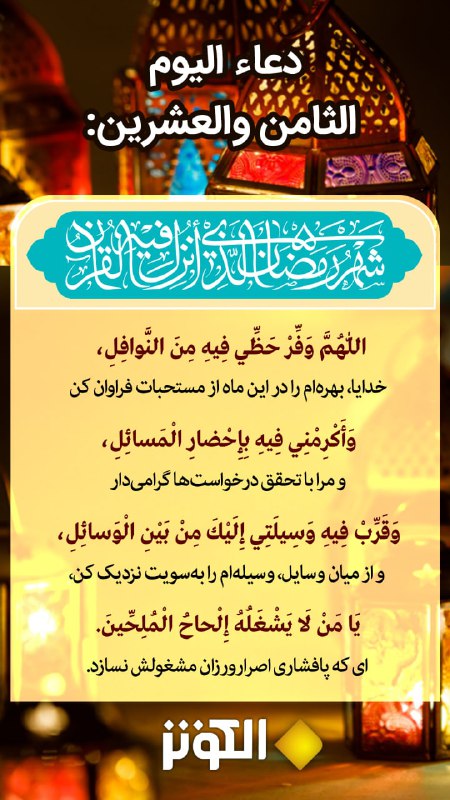 دعاء اليوم
الثامن والعشرين:
شهر رمضان الذي أنزل فيه القرآن
اللّٰهُمَّ وَفِّرْ حَظِّي فِيهِ مِنَ النَّوافِلِ،
خدایا، بهره‌ام را در این ماه از مستحبات فراوان کن
وَأَكْرِمْنِي فِيهِ بِإِحْضارِ الْمَسائِلِ،
و مرا با تحقق درخواست‌ها گرامی‌دار
وَقَرِّبْ فِيهِ وَسِيلَتِي إِلَيْكَ مِنْ بَيْنِ الْوَسائِلِ،
و از میان وسایل، وسیله‌ام را به‌سویت نزدیک کن،
يَا مَنْ لَا يَشْغَلُهُ إِلْحاحُ الْمُلِحِّينَ.
ای که پافشاری اصرارورزان مشغولش نسازد.
الكوثر